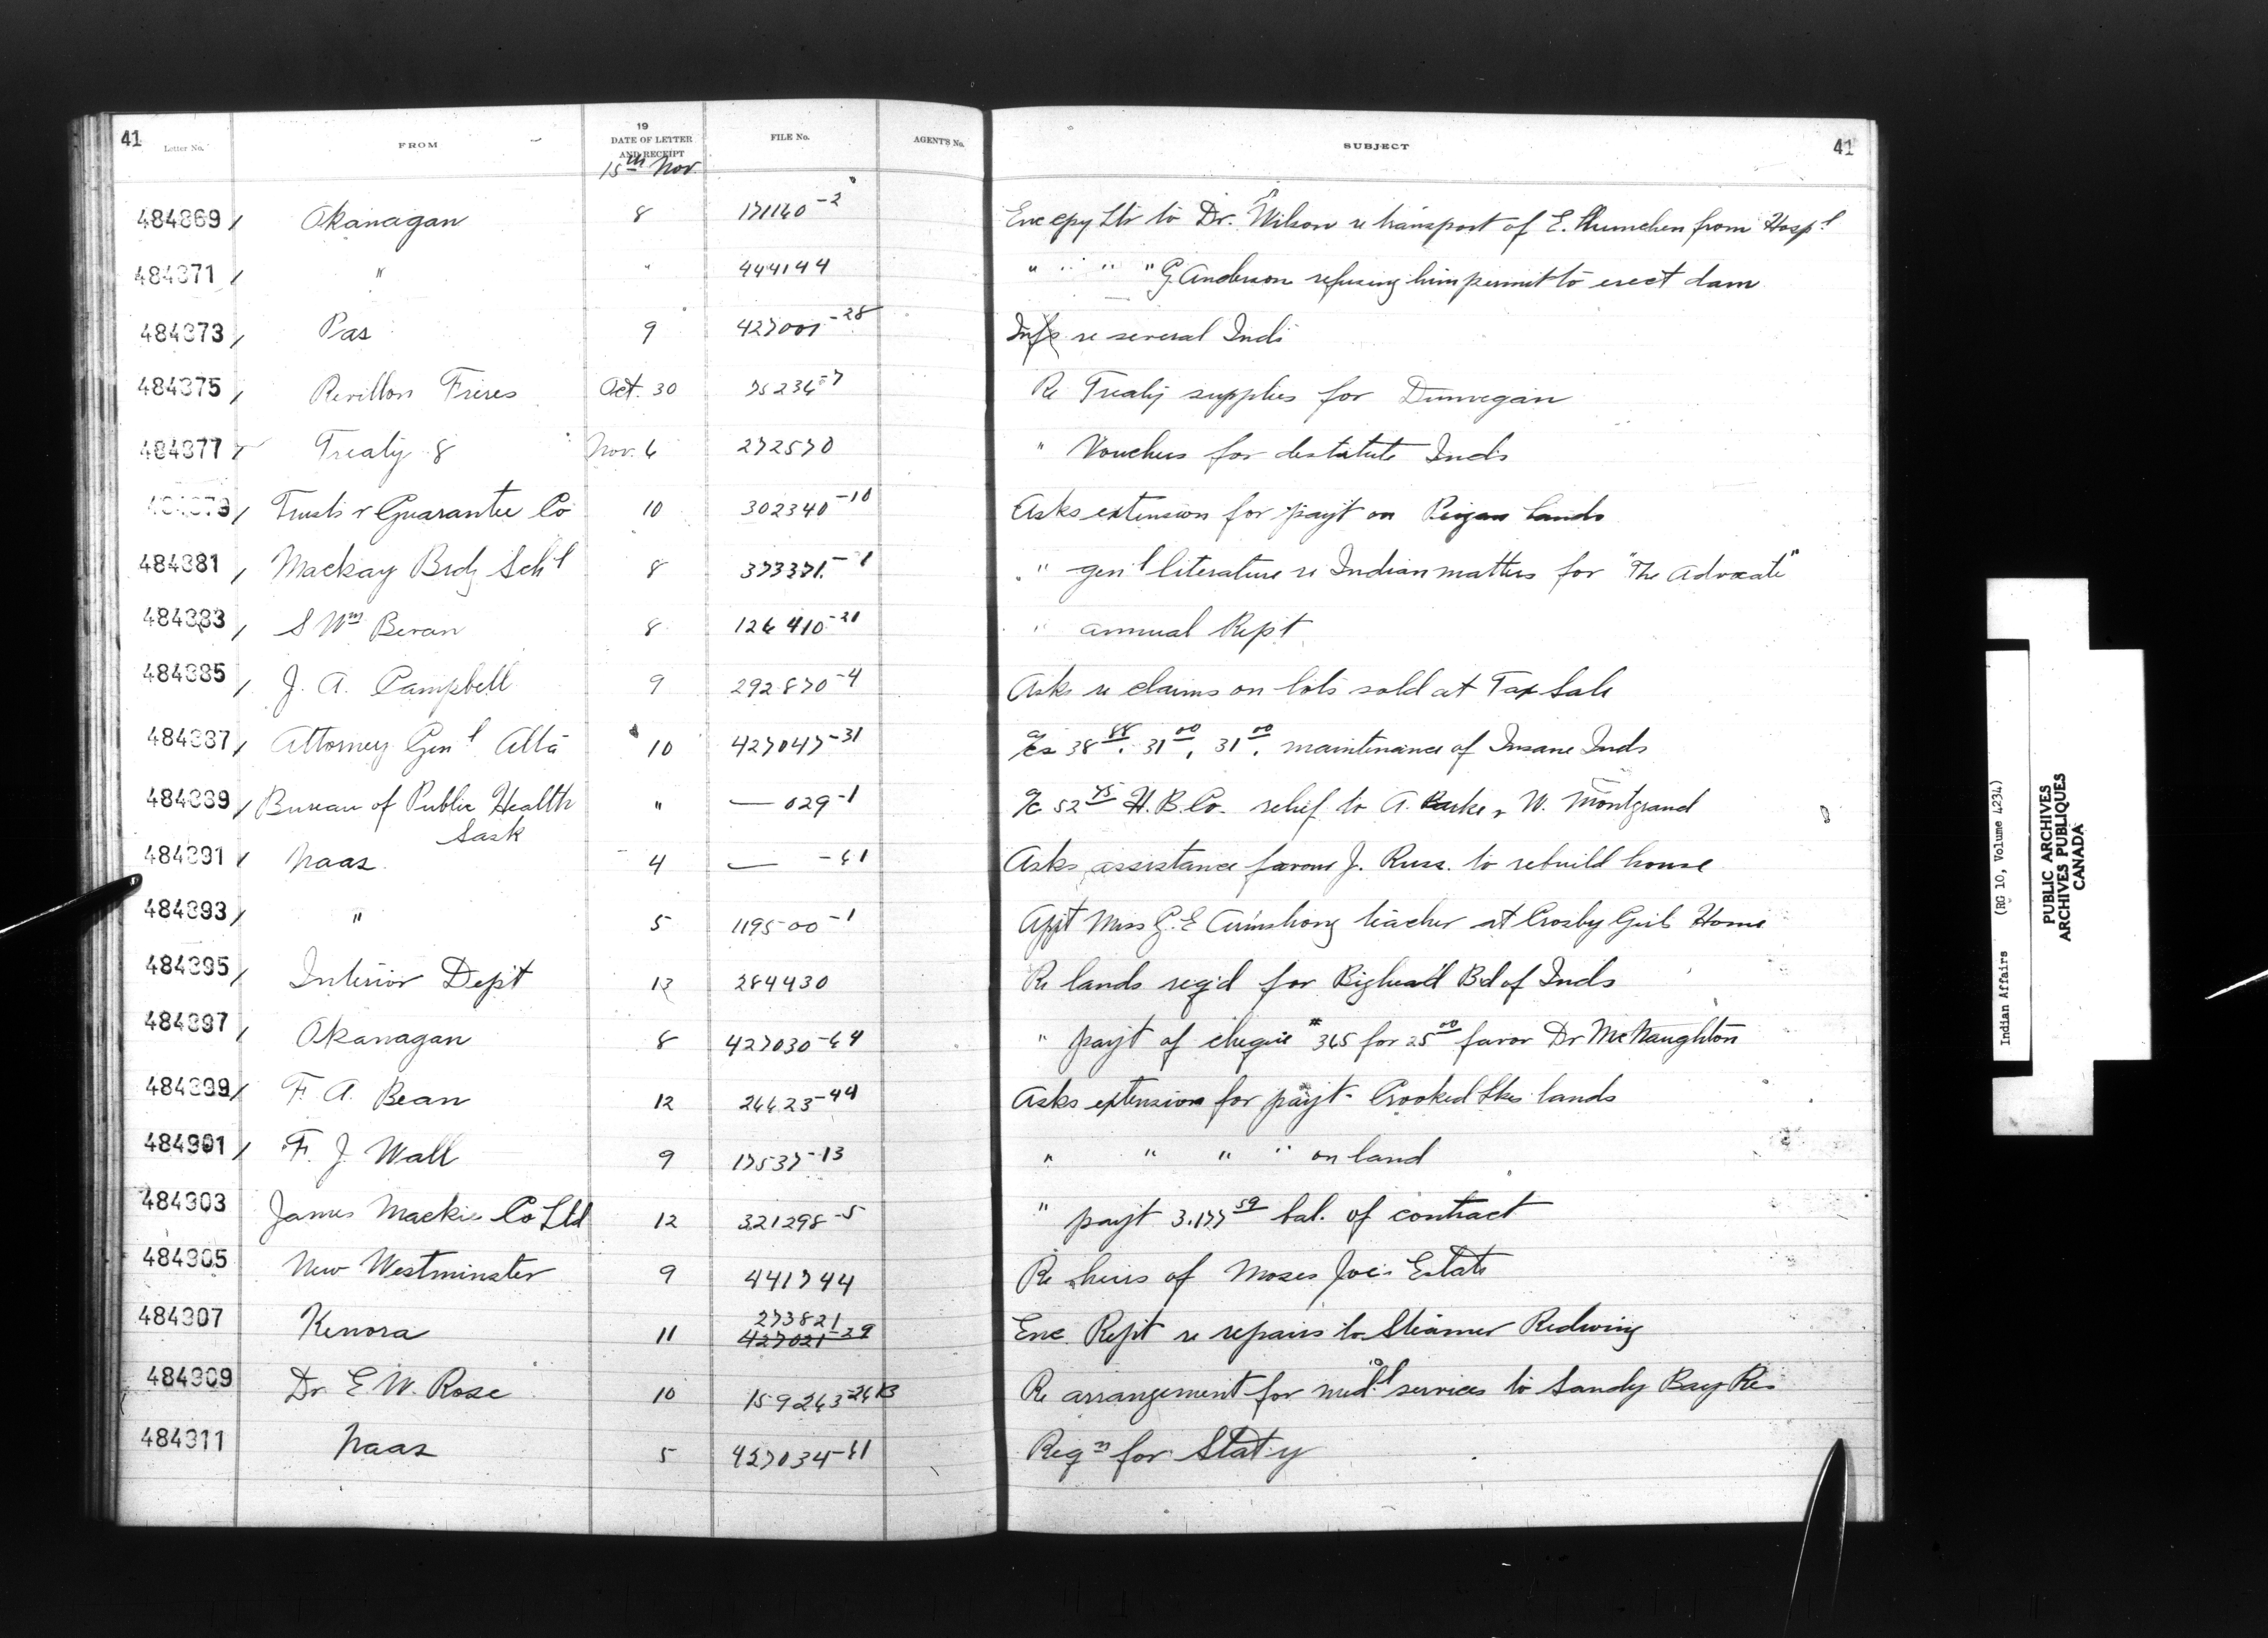 41 Letter No. FROM 19 DATE OF LETTER AND RECEIPT FILE No. AGENT'S No. SUBJECT 41
15th Nov.
484869 Okanagan 8 171140-2 Enc cpy Ltr to Dr. Wilson re transport of E. from Hospl
484871 " " 444144 " " " " G Anderson refusing him permit to erect dam
484873 Pas 9 427001-28 Info re several Inds
484875 Revillon Freres Oct. 30 75236-7 Re Treaty supplies for Dunvegan
484877 Treaty 8 Nov. 6 272570 " Vouchers for destitute Inds
484879 Trusts & Guarantee Co 10 302340-10 Asks extension for payt on Peigan lands
484881 Mackay Brdg Schl 8 373371-1 " genl literature re Indian matters for "The Advocate"
484883 S Wm Bevan 8 126410-21 " annual Rept
484885 J. A. Campbell 9 292870-4 Asks re claims on lots sold at Tax Sale
484887 Attorney Genl Alta 10 427047-31 a/cs 38 88, 31 00, 31 00, maintenance of Insane Inds
484889 Bureau of Public Health " — 029-1 a/c 52 75 H. B. Co. relief to A. Burke & W. Montgrand
Sask
484891 Naas 4 — -61 Asks assistance favour J. Russ. to rebuild house
484893 " 5 119500-1 Appt Miss G. E Armstrong teacher at Crosby Girls Home
484895 Interior Dept 13 284430 Re lands req'd for Bighead Bd of Inds
484897 Okanagan 8 427030-64 " payt of cheque #365 for 25 00 favor Dr McNaughton
484899 F. A. Bean 12 26623-44 Asks extension for payt - Crooked Lkes lands
484901 F. J. Wall 9 17537-13 " " " " on land
484903 James Mackie Co Ltd 12 321298-5 " payt 3.177 59 bal. of contract
484905 New Westminster 9 441744 Re heirs of Moses Joe's Estate
484907 Kenora 11 273821 427021-29 Enc. Rept re repairs to Steamer Redwing
484909 Dr E W. Rose 10 159263-26B Re arrangement for medl services to Sandy Bay Res
484911 Naas 5 427034-61 Reqn for Stat'y
Indian Affairs (RG 10, Volume 4234)
PUBLIC ARCHIVES
ARCHIVES PUBLIQUES
CANADA